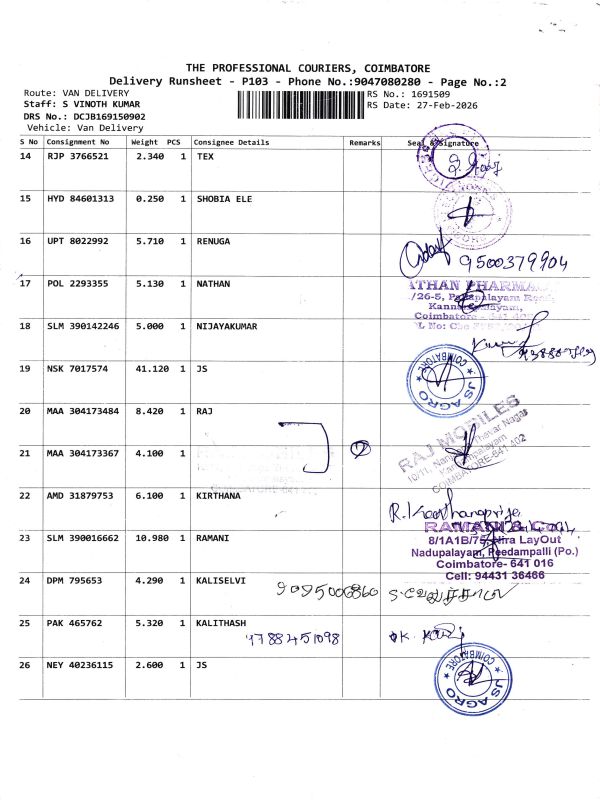 THE PROFESSIONAL COURIERS, COIMBATORE
Delivery Runsheet - P103 - Phone No.:9047080280 - Page No.:2
Route: VAN DELIVERY RS No.: 1691509
Staff: S VINOTH KUMAR RS Date: 27-Feb-2026
DRS No.: DCJB169150902
Vehicle: Van Delivery
S No Consignment No Weight PCS Consignee Details Remarks Seal & Signature
14 RJP 3766521 2.340 1 TEX
15 HYD 84601313 0.250 1 SHOBIA ELE
16 UPT 8022992 5.710 1 RENUGA
9500379904
17 POL 2293355 5.130 1 NATHAN
ATHAN PHARMA
18 SLM 390142246 5.000 1 NIJAYAKUMAR
19 NSK 7017574 41.120 1 JS
COIMBATORE
JS AGRO
20 MAA 304173484 8.420 1 RAJ
RAJ MOBILES
21 MAA 304173367 4.100 1 2
COIMBATORE-641 402
22 AMD 31879753 6.100 1 KIRTHANA
23 SLM 390016662 10.980 1 RAMANI
RAMANI & Co.
8/1A1B/75, Hira LayOut
Nadupalayam, Peedampalli (Po.)
Coimbatore- 641 016
Cell: 94431 36466
24 DPM 795653 4.290 1 KALISELVI
25 PAK 465762 5.320 1 KALITHASH
9788451098
26 NEY 40236115 2.600 1 JS
COIMBATORE
JS AGRO